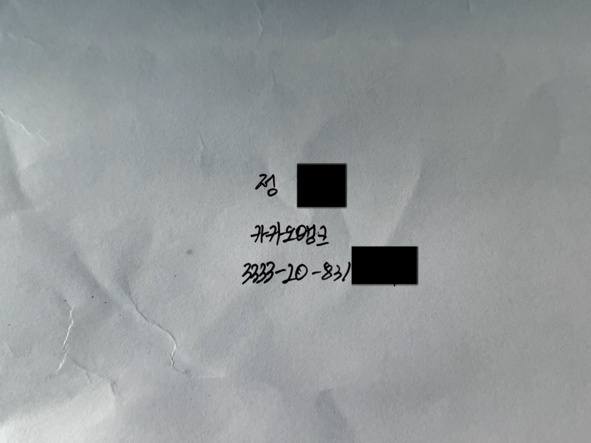 정
카카오뱅크
3333-20-831